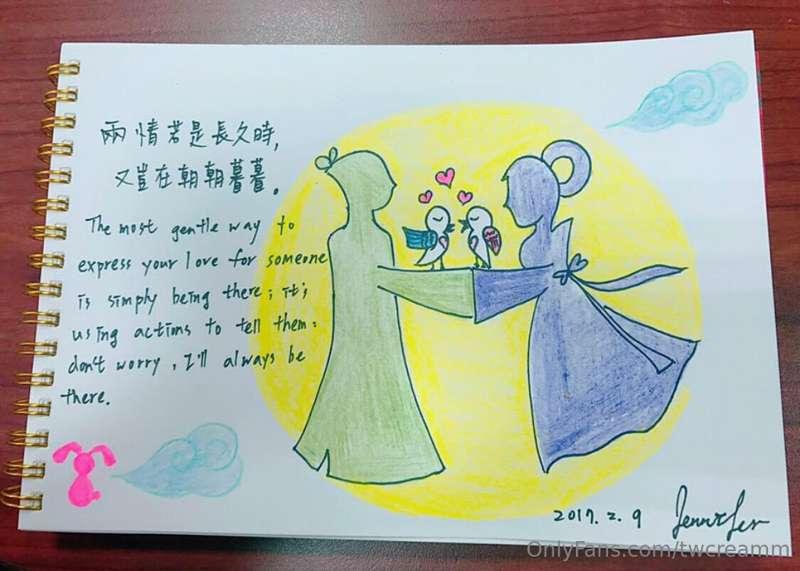 兩情若是長久時,
又豈在朝朝暮暮。
The most gentle way to
express your love for someone
is simply being there; it's
using actions to tell them:
don't worry, I'll always be
there.
2017. 2. 9 Jennifer
OnlyFans.com/twcreamm